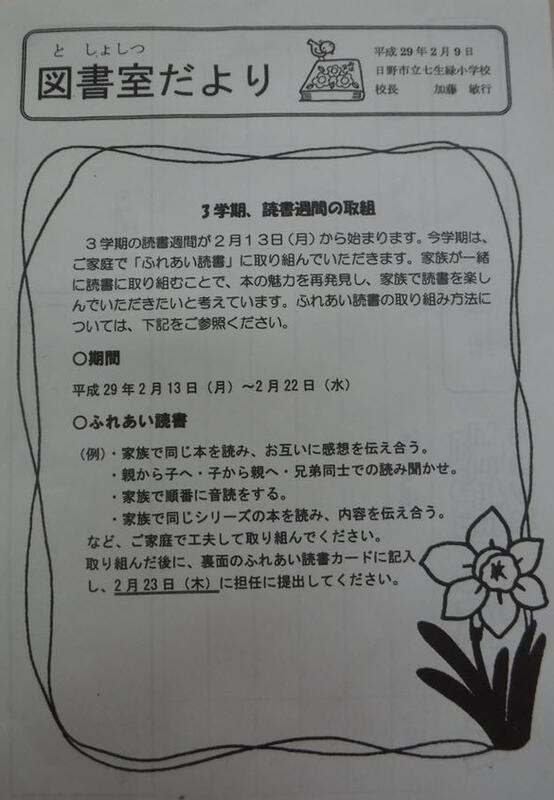 と しょしつ
図書室だより
平成29年2月9日
日野市立七生緑小学校
校長 加藤 敏行
3学期、読書週間の取組
3学期の読書週間が2月13日(月)から始まります。今学期は、
ご家庭で「ふれあい読書」に取り組んでいただきます。家族が一緒
に読書に取り組むことで、本の魅力を再発見し、家族で読書を楽し
んでいただきたいと考えています。ふれあい読書の取り組み方法に
ついては、下記をご参照ください。
○期間
平成29年2月13日(月)~2月22日(水)
○ふれあい読書
(例)・家族で同じ本を読み、お互いに感想を伝え合う。
・親から子へ・子から親へ・兄弟同士での読み聞かせ。
・家族で順番に音読をする。
・家族で同じシリーズの本を読み、内容を伝え合う。
など、ご家庭で工夫して取り組んでください。
取り組んだ後に、裏面のふれあい読書カードに記入
し、2月23日(木)に担任に提出してください。